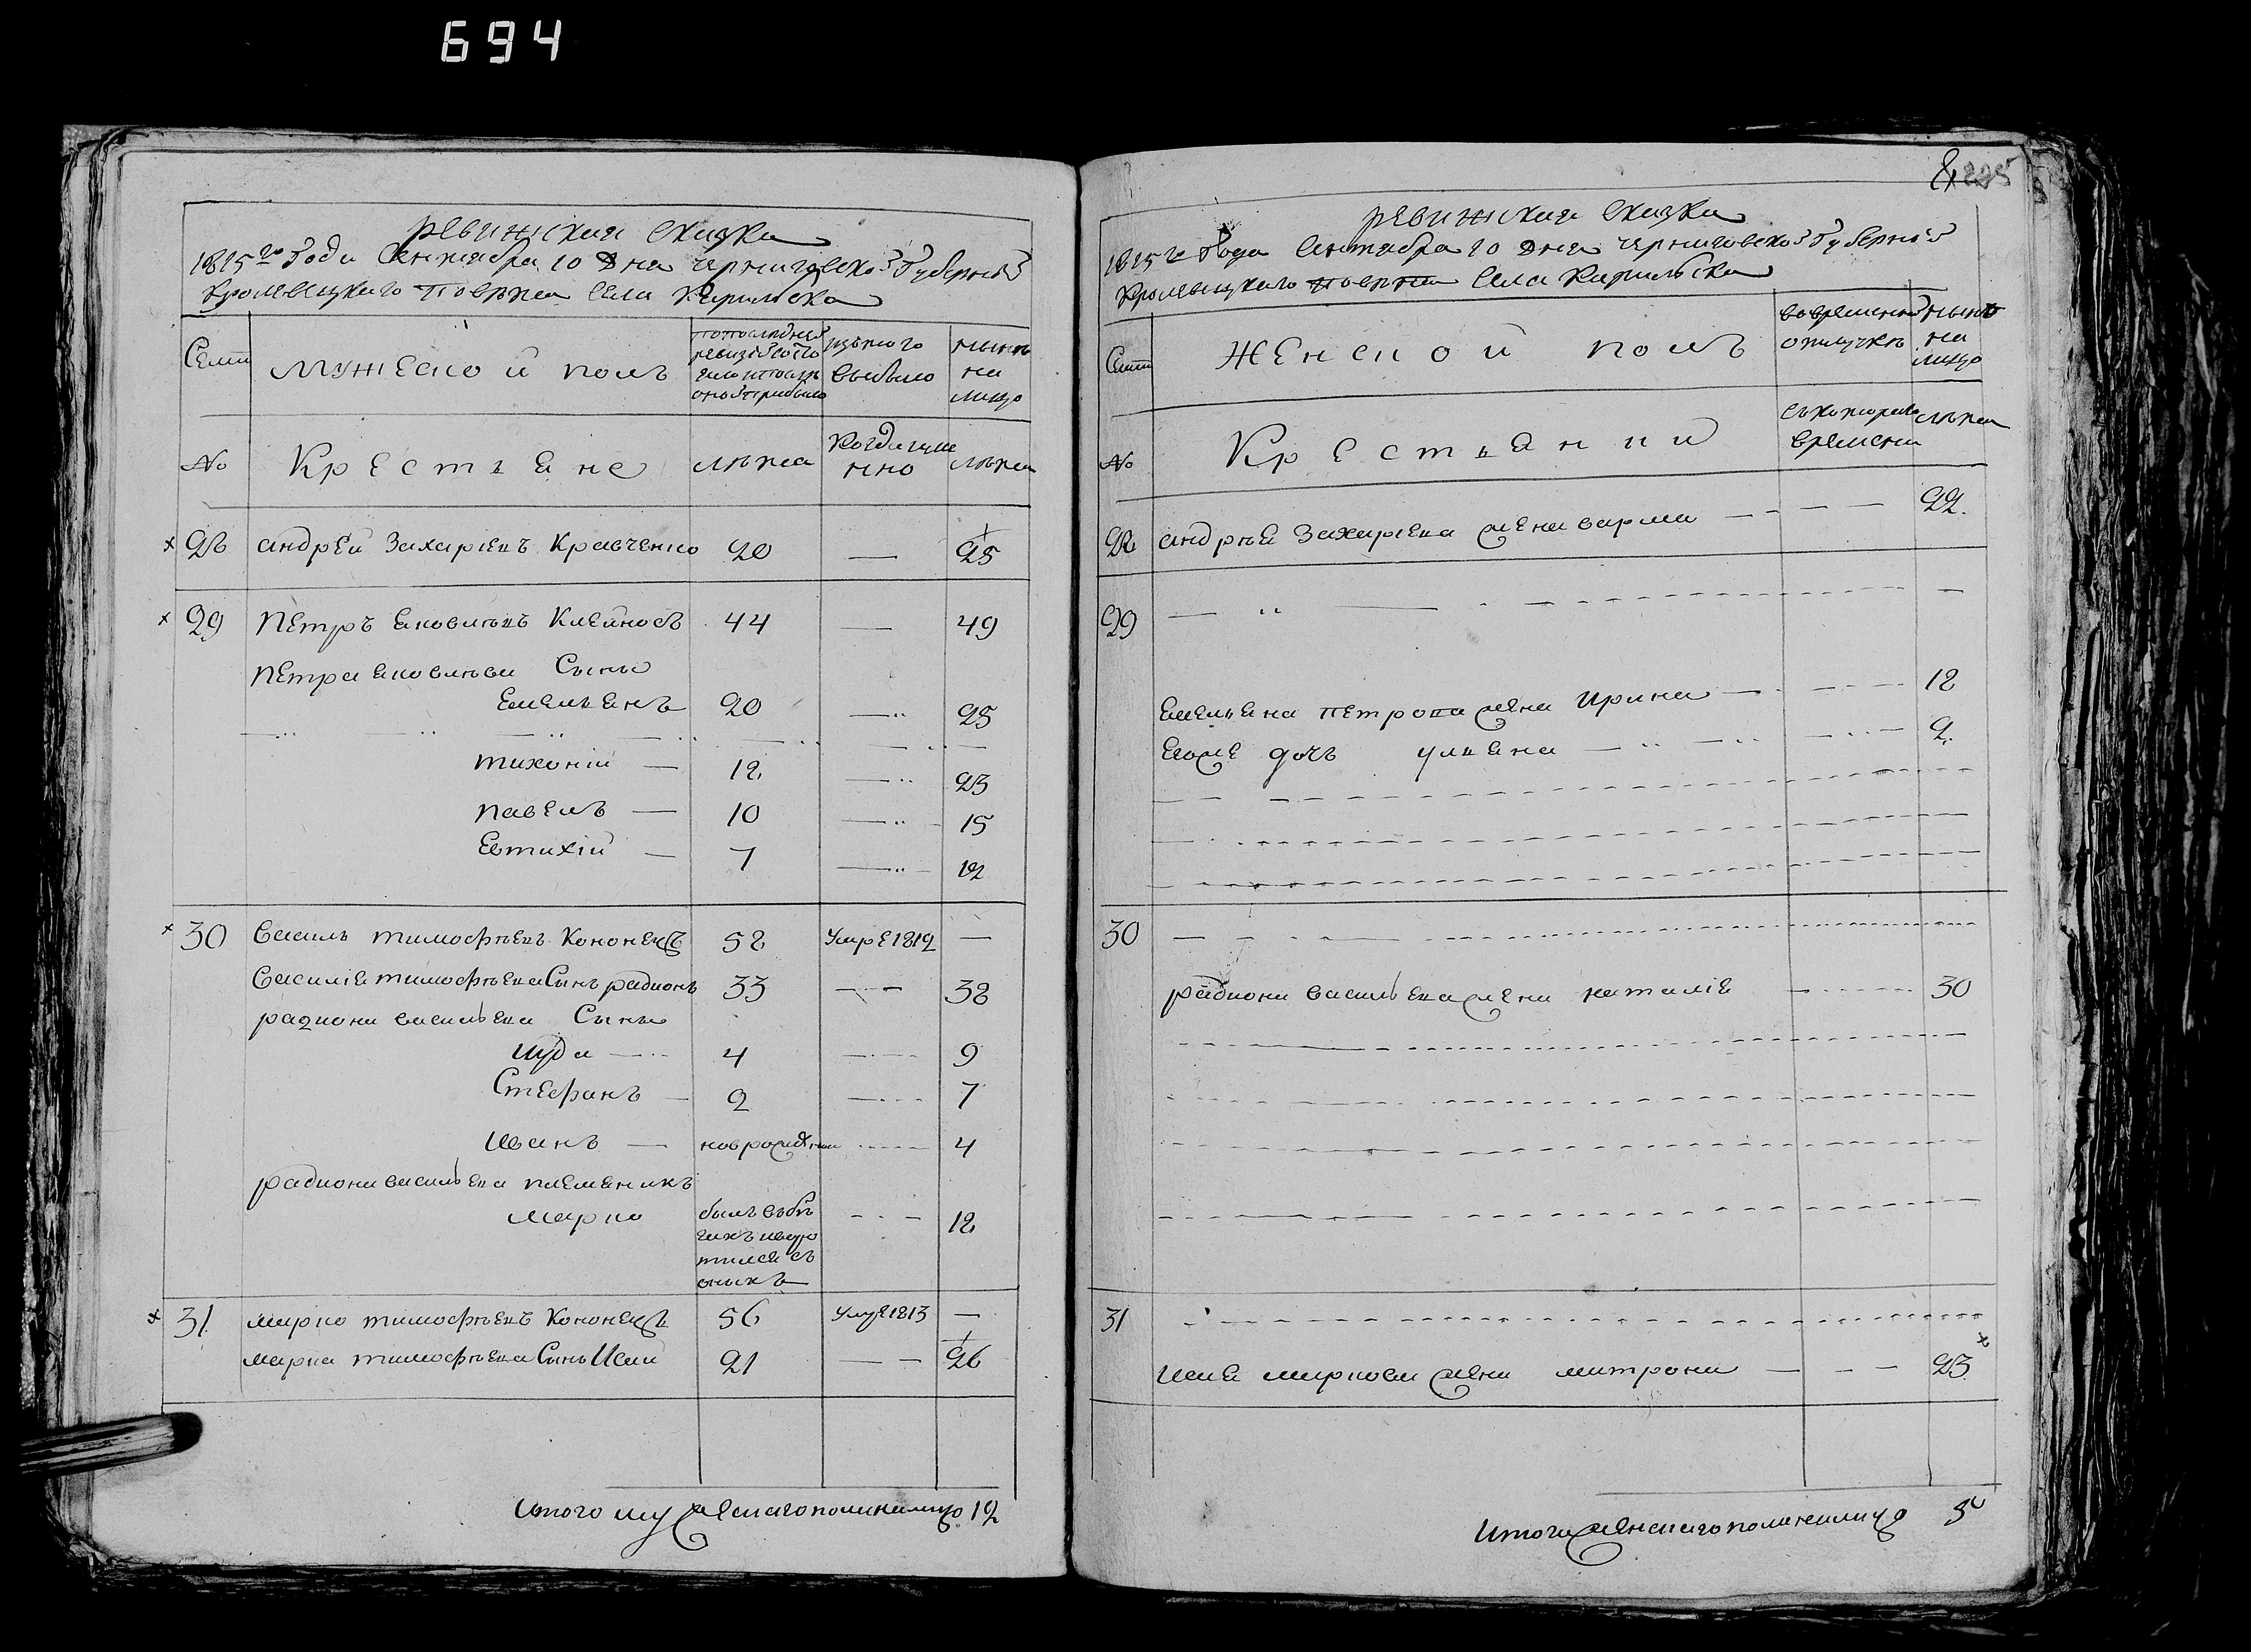 694
ревижская сказка
1815го Года Сентября 10 Дня черниговской Губернїй
Кролевецкаго Повѣта Села Карилска
Семи
мужеской полъ
попослѣдней ревизїй состояло и послѣ оной прибыло
изъ того выбыло
нынѣ на лицо
No
Крестьяне
лѣта
Когда именно
лѣта
28 андрей Захарїевъ Кравченко 20 — 25
29 Петръ Яковлѣвъ Клейносъ 44 — 49
Петра Яковлѣва Сыны
Емельянъ 20 — 25
тихоній — 18 — 23
павелъ — 10 — 15
Евтихій — 7 — 12
30 Василь тимофѣевъ Кононецъ 58 Умре 1812 —
Василія тимофѣева Сынъ радионъ 33 — 38
радиона васильева Сыны
Иуда — 4 — 9
Стефанъ — 2 — 7
Иванъ — новрожденъ — 4
радиона васильева племеникъ
марко былъ въбѣгахъ и воротился съ оныхъ — 18
31 марко тимофѣевъ Кононецъ 56 Умре 1813 —
марка тимофѣева Сынъ Исай 21 — 26
Итого мужескаго пола налицо 12
8, 225
ревижская сказка
1815го Года Сентября 10 Дня черниговской Губерній
Кролевецкаго повѣта Села Карилска
Семи
Женской полъ
вовременной отлучкѣ
нынѣ на лицо
No
Крестьянки
съкотораго времени
лѣта
28 андрѣя Захарїева жена варка — 22.
29
Емельяна петрова жена Ирина — 18
Егоже дочь ульяна — 2.
30
радиона васильева жена наталія — 30
31
исая маркова жена матрона — 23
Итого женскаго пола налицо 5